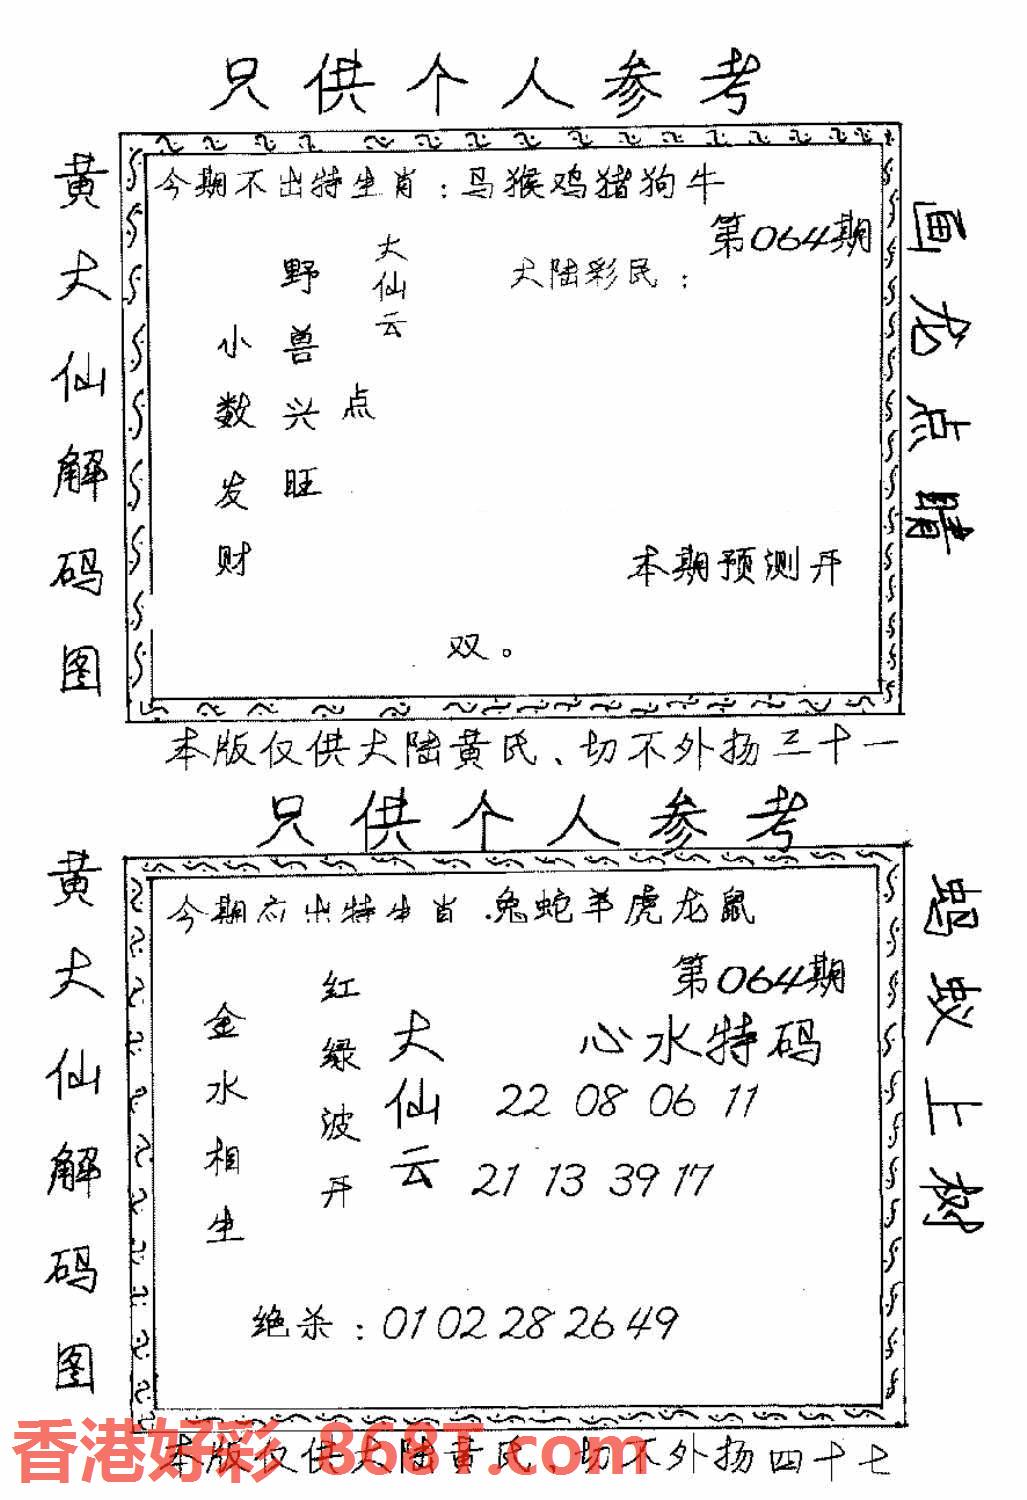 只供个人参考
黄大仙解码图
今期不出特生肖：马猴鸡猪狗牛
第064期
大仙云
大陆彩民：
野兽兴旺
小数发财
点
本期预测开
双。
画龙点睛
本版仅供大陆黄氏、切不外扬三十一
只供个人参考
黄大仙解码图
今期应出特生肖.兔蛇羊虎龙鼠
第064期
红绿波开
金水相生
大仙云
心水特码
22 08 06 11
21 13 39 17
绝杀：01 02 28 26 49
蚂蚁上树
香港好彩 868T.com
本版仅供大陆黄氏、切不外扬四十七